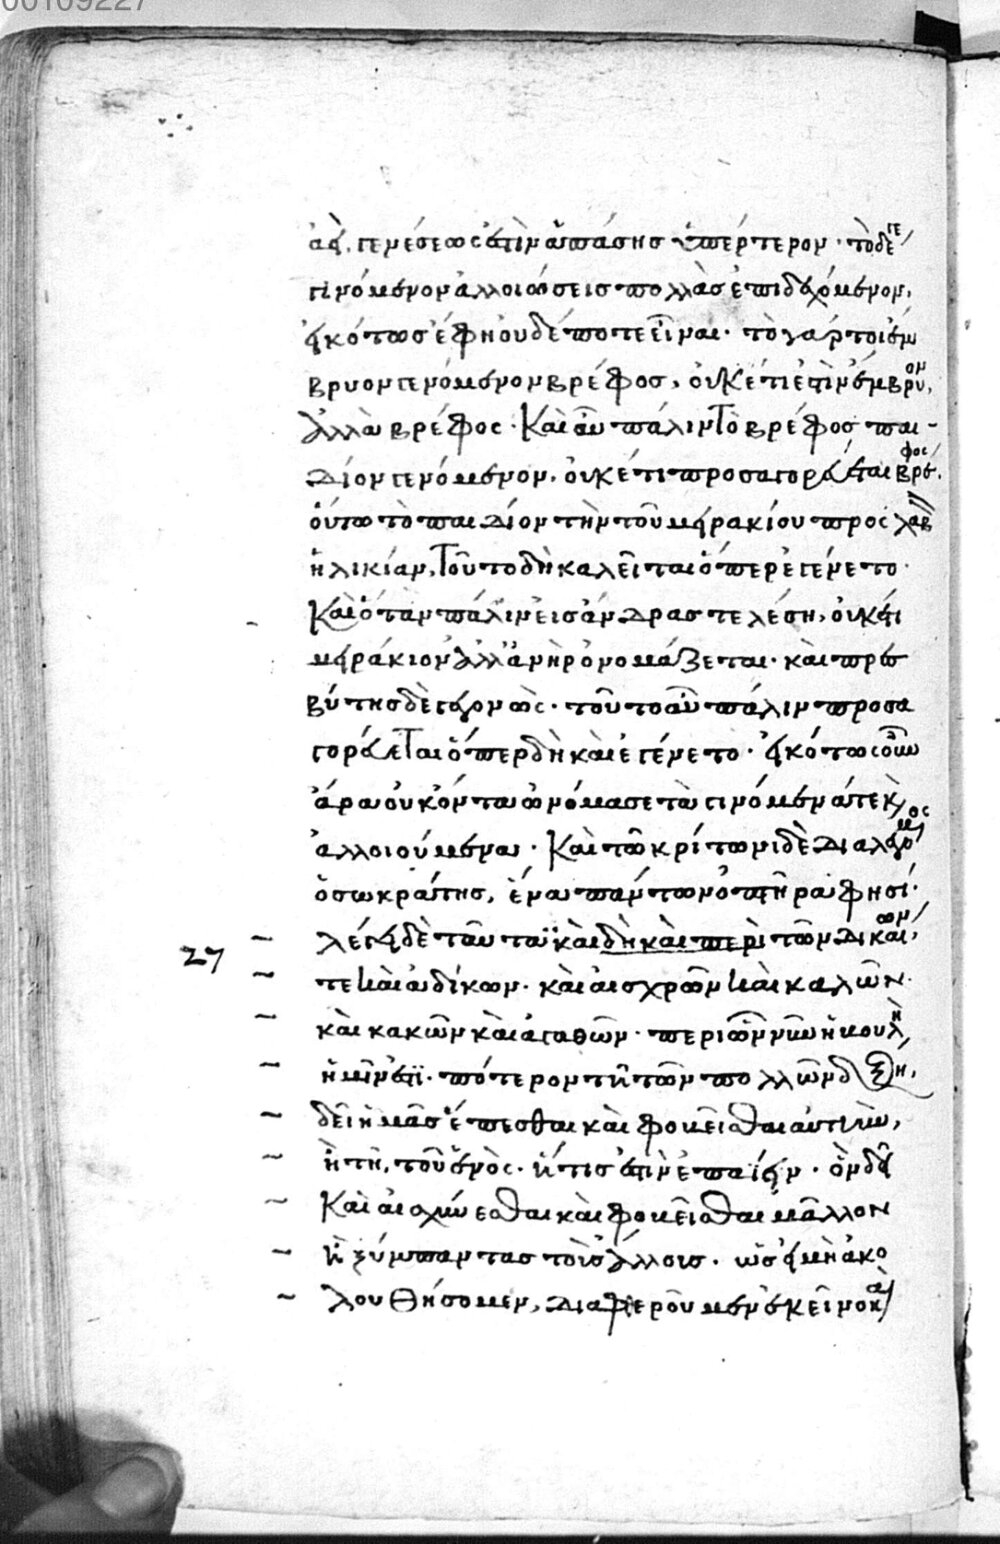 00109227
ἀεί, γενέσεως ἐστὶν ἁπάσης ὑπέρτερον· τὸ δέ γε
γινόμενον ἀλλοιώσεις πολλὰς ἐπιδεχόμενον,
εἰκότως ἔφη οὐδέποτε εἶναι· τὸ γάρ τοι ἔμ
βρυον γενόμενον βρέφος, οὐκέτι ἐστὶν ἔμβρυον,
ἀλλὰ βρέφος· Καὶ αὖ πάλιν τὸ βρέφος παι-
δίον γενόμενον, οὐκέτι προσαγορεύεται βρέφος·
οὕτω τὸ παιδίον τὴν τοῦ μειρακίου προσλαβ
ἡλικίαν, τοῦτο δὴ καλεῖται ὅπερ ἐγένετο·
Καὶ ὅταν πάλιν εἰς ἄνδρας τελέσῃ, οὐκέτι
μειράκιον ἀλλ' ἀνὴρ ὀνομάζεται· καὶ πρεσ
βύτης δὲ γεγονὼς· τοῦτο αὖ πάλιν προσα
γορεύεται ὅπερ δὴ καὶ ἐγένετο· εἰκότως οὖν
ἄρα οὐκ ὄντα ὠνόμασε τὰ γινόμενά τε καὶ
ἀλλοιούμενα· Καὶ τῶ κρίτωνι δὲ διαλεγόμενος
ὁ σωκράτης, ἕνα πάντων ὀπτῆρα φησί·
λέγει δὲ ταῦτα· καὶ δὴ καὶ περὶ τῶν δικαίων
27
τε καὶ ἀδίκων· καὶ αἰσχρῶν καὶ καλῶν·
καὶ κακῶν καὶ ἀγαθῶν· περὶ ὧν νῦν ἡ βουλὴ
ἡμῖν ἐστι· πότερον τῆ τῶν πολλῶν δόξη,
δεῖ ἡμᾶς ἕπεσθαι καὶ φοβεῖσθαι αὐτὴν,
ἢ τῆ τοῦ ἑνὸς· εἴ τις ἐστὶν ἐπαίων· ὃν δεῖ
Καὶ αἰσχύνεσθαι καὶ φοβεῖσθαι μᾶλλον
ἢ ξύμπαντας τοὺς ἄλλους· ᾧ εἰ μὴ ἀκο
λουθήσομεν, διαφθεροῦμεν ἐκεῖνο καὶ